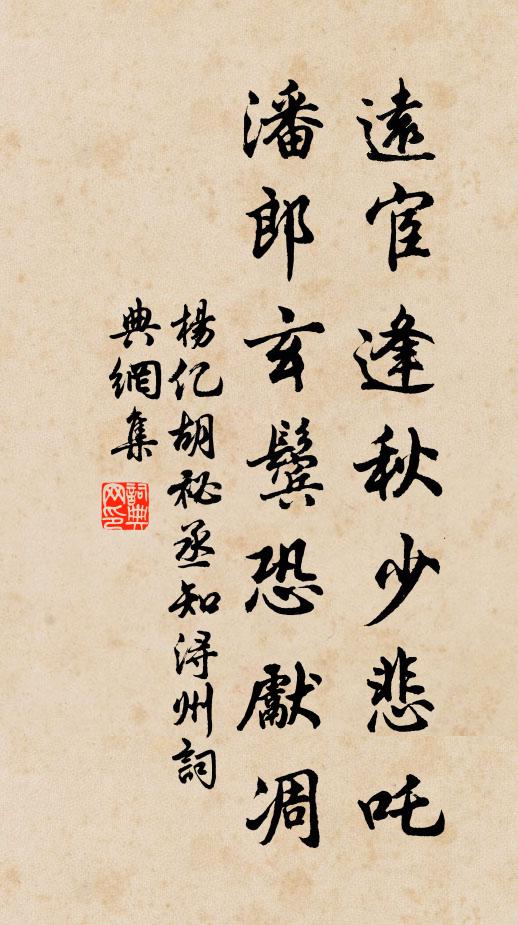 遠宦逢秋少悲吒
潘郎玄鬢恐獻凋
楊億胡祕丞知潯州詞
典網集
詞典網印